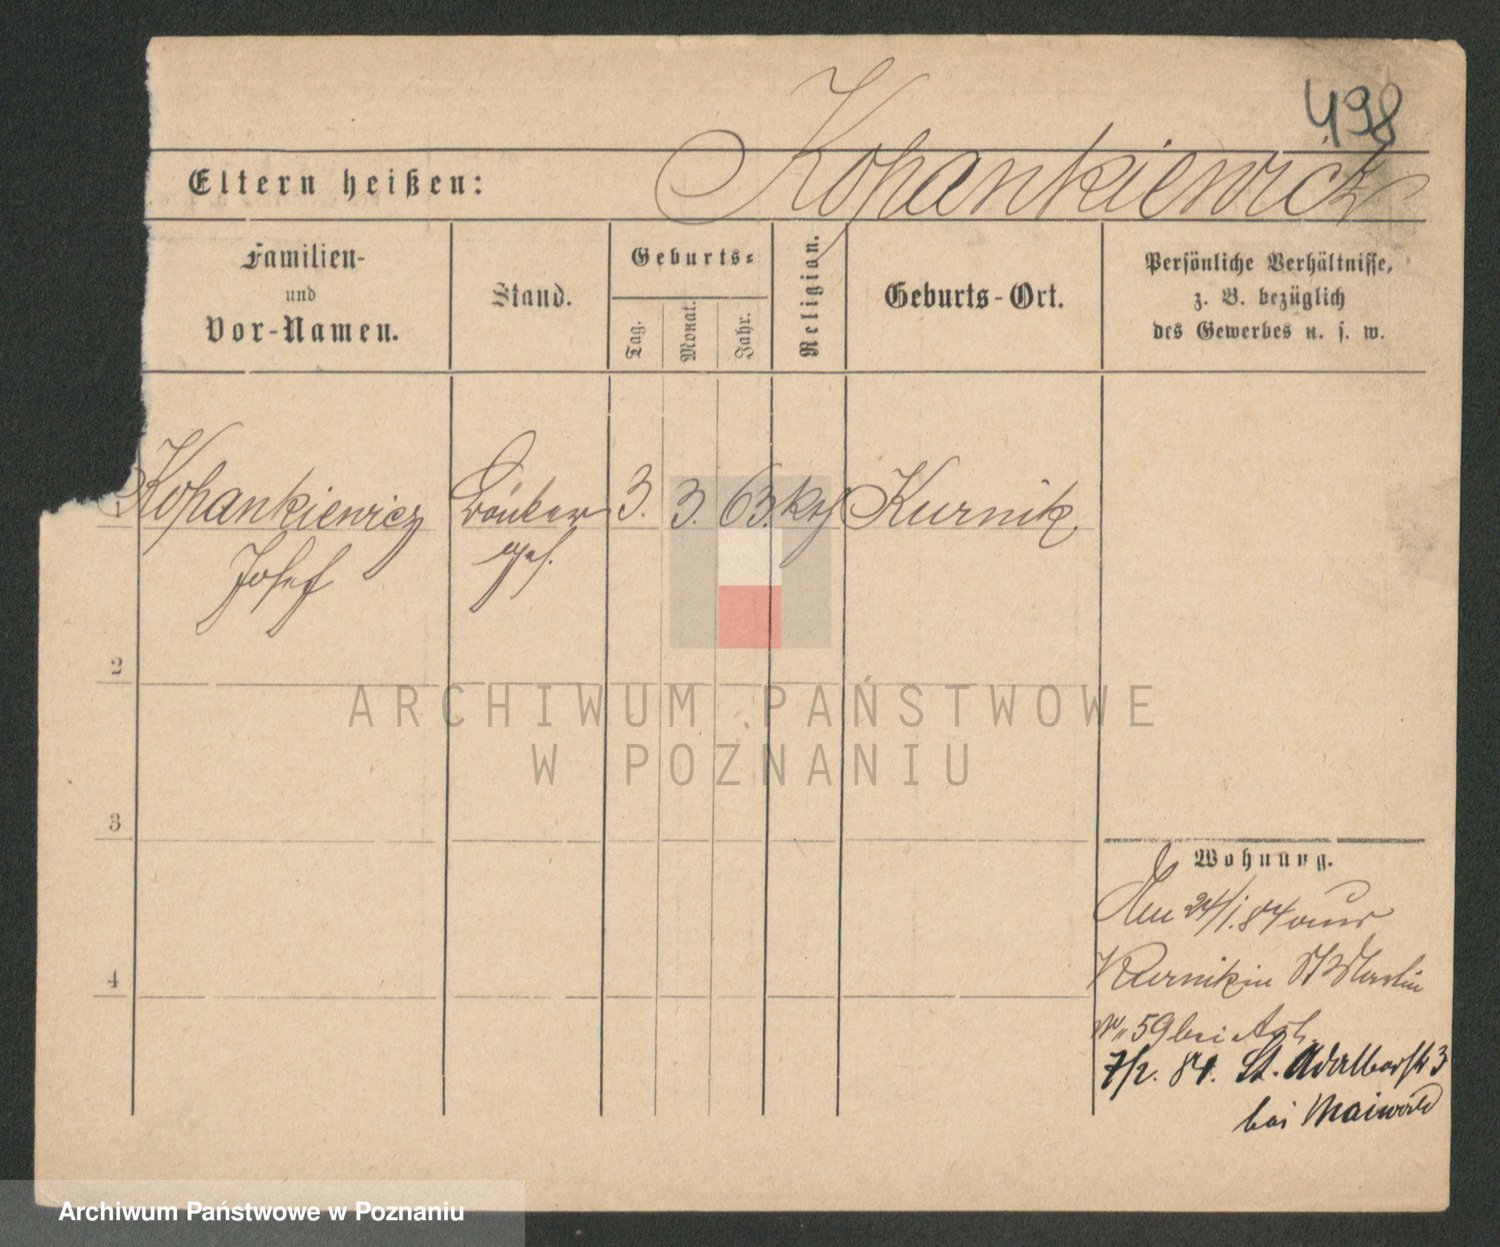 498
Kopankiewicz
Eltern heißen:
Familien-
und
Vor-Namen.
Stand.
Geburts-
Tag.
Monat.
Jahr.
Religion.
Geburts-Ort.
Persönliche Verhältnisse,
z. B. bezüglich
des Gewerbes u. s. w.
Kopankiewicz 3. 3. 63. kth Kurnik
Josef
2
3
4
Wohnung.
24/1. 84 aus
Kurnik in St Martin
59 bei
7/2. 84. St. Adalbertstr 3
bei Maiwald
ARCHIWUM PAŃSTWOWE
W POZNANIU
Archiwum Państwowe w Poznaniu